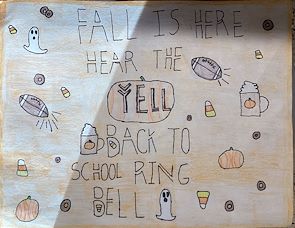 FALL IS HERE
HEAR THE
YELL
BACK TO
SCHOOL RING
BELL